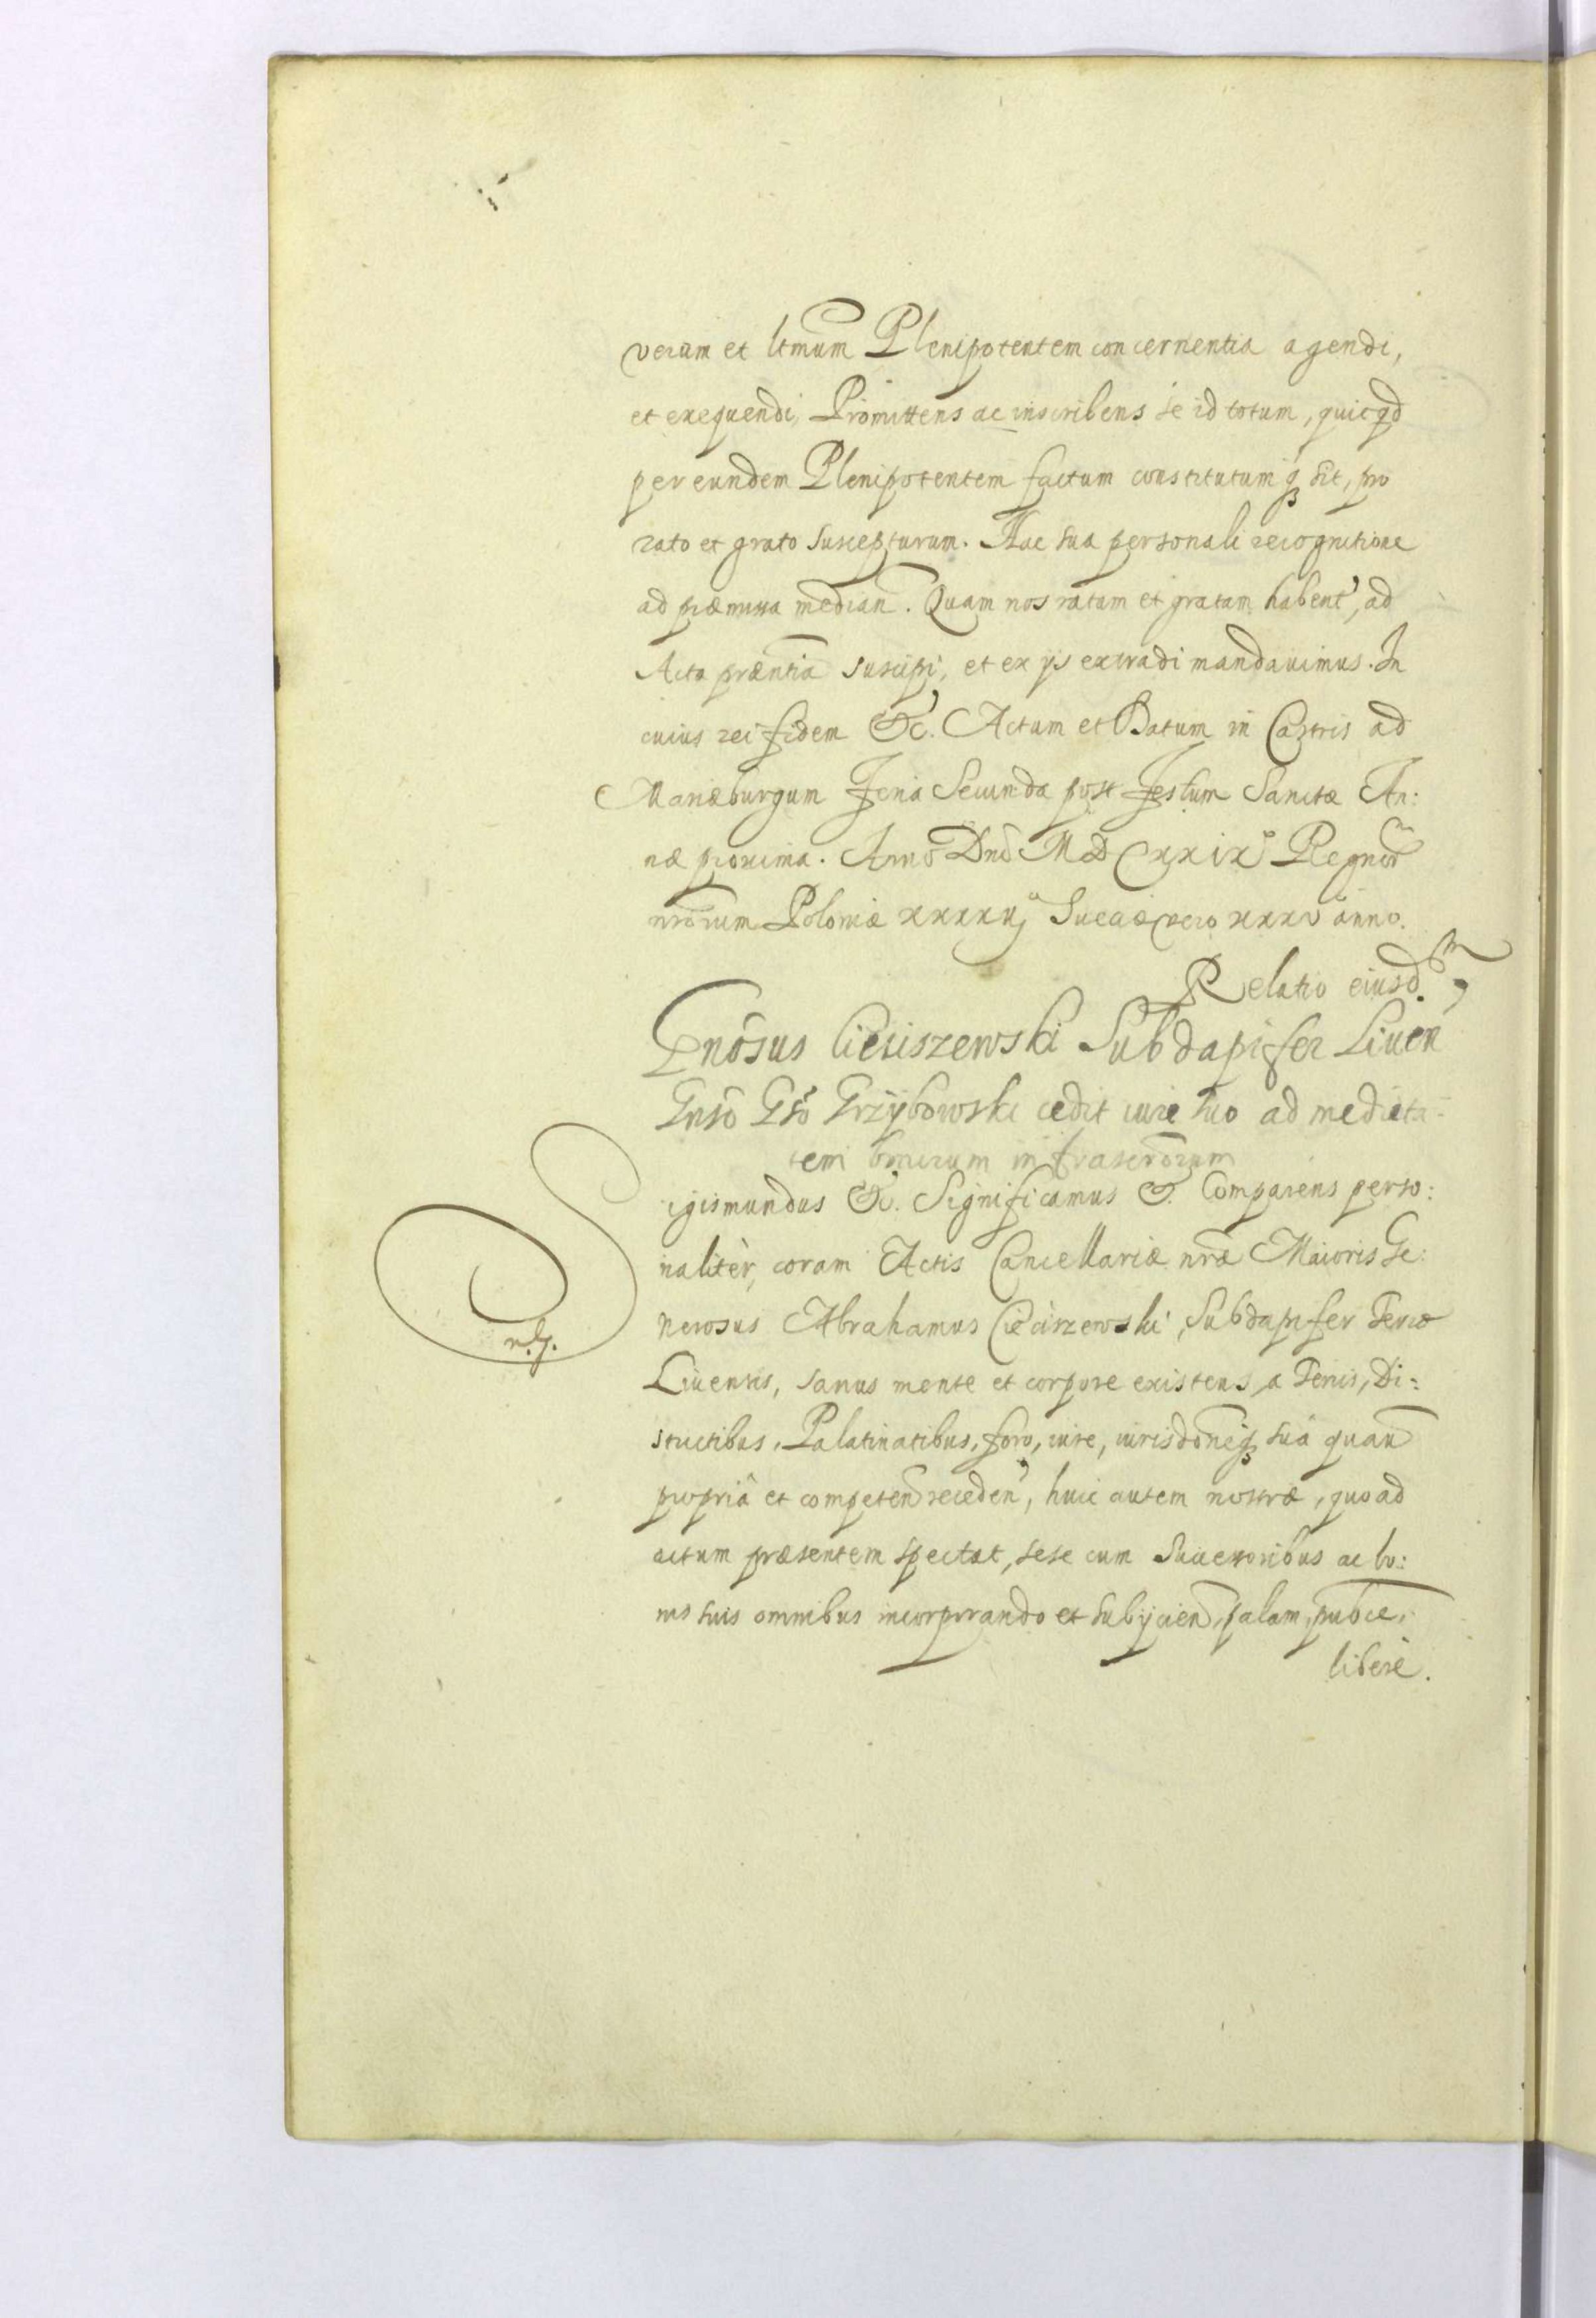 verum et ltmum Plenipotentem concernentia agendi,
et exequendi, Promittens ac inscribens se id totum, quicqd
per eundem Plenipotentem factum constitutumq sit, pro
rato et grato suscepturum. Hac sua personali recognitione
ad præmissa median. Quam nos ratam et gratam habent, ad
Acta præntia suscipi, et ex ijs extradi mandauimus. In
cuius rei fidem &c. Actum et Datum in Castris ad
Mariæburgum Feria Secunda post Festum Sanctæ An:
næ proxima. Anno Dni MDCXXIX Regnor
nrorum Poloniæ xxxxij Sueciæ vero xxxv anno.
Relatio eiusd
Gnosus Cieciszewski Subdapifer Liuen
Gnso Grzybowski cedit iure suo ad medieta-
tem bonorum infrascrorum
Sigismundus &c. Significamus &. Comparens perso:
naliter, coram Actis Cancellariæ nræ Maioris Ge:
nerosus Abrahamus Cieciszewski, Subdapifer Terræ
Liuensis, sanus mente et corpore existens, a Terris, Di:
strictibus, Palatinatibus, foro, iure, iurisdoneq sua quauis
propriâ et competen receden, huic autem nostræ, quo ad
actum præsentem spectat, sese cum Successoribus ac bo:
nis suis omnibus incorporando et subijcien, palam, pubce,
liberè.